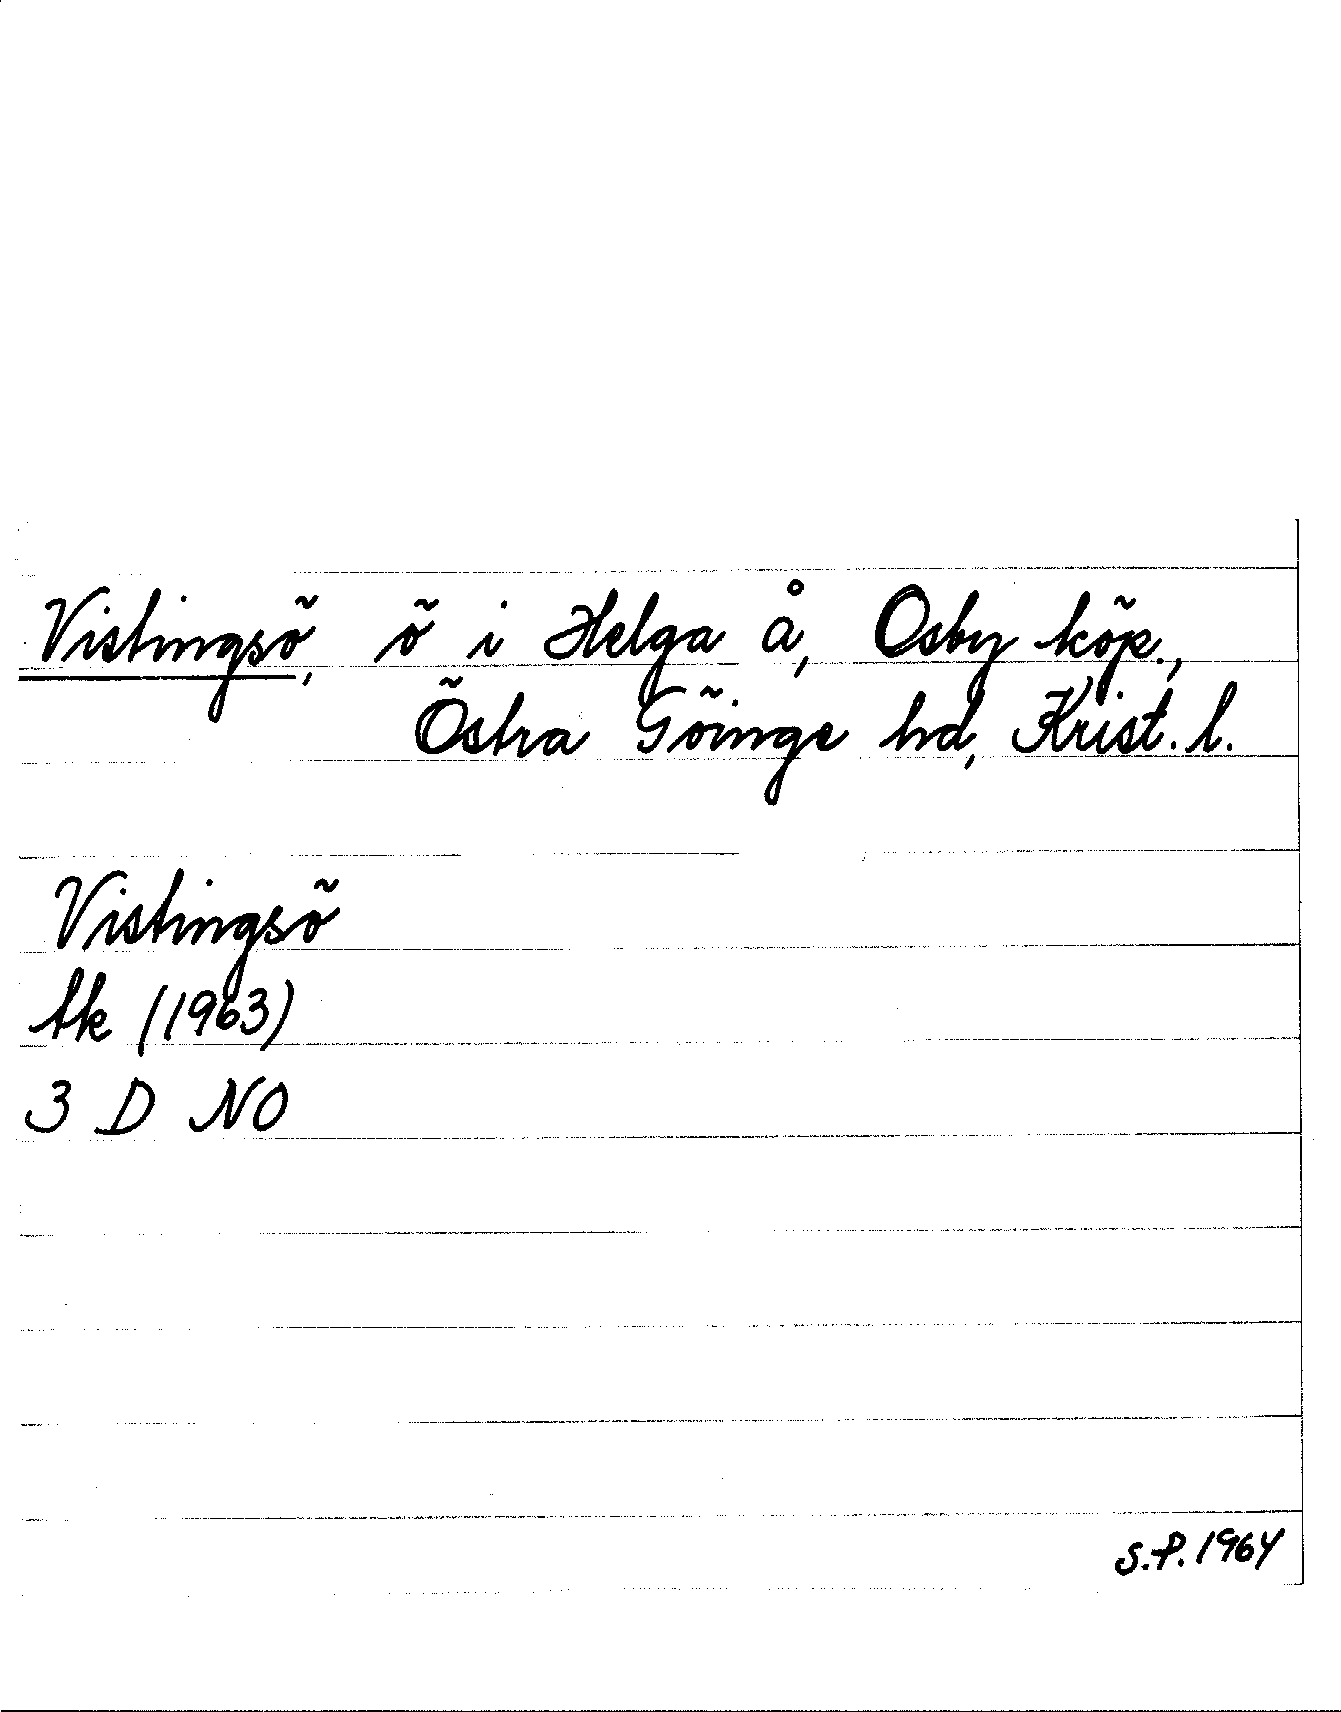 Vistingsö, ö i Helga å, Osby köp.,
Östra Göinge hd, Krist. l.
Vistingsö
tk (1963)
3 D NO
S.P. 1964